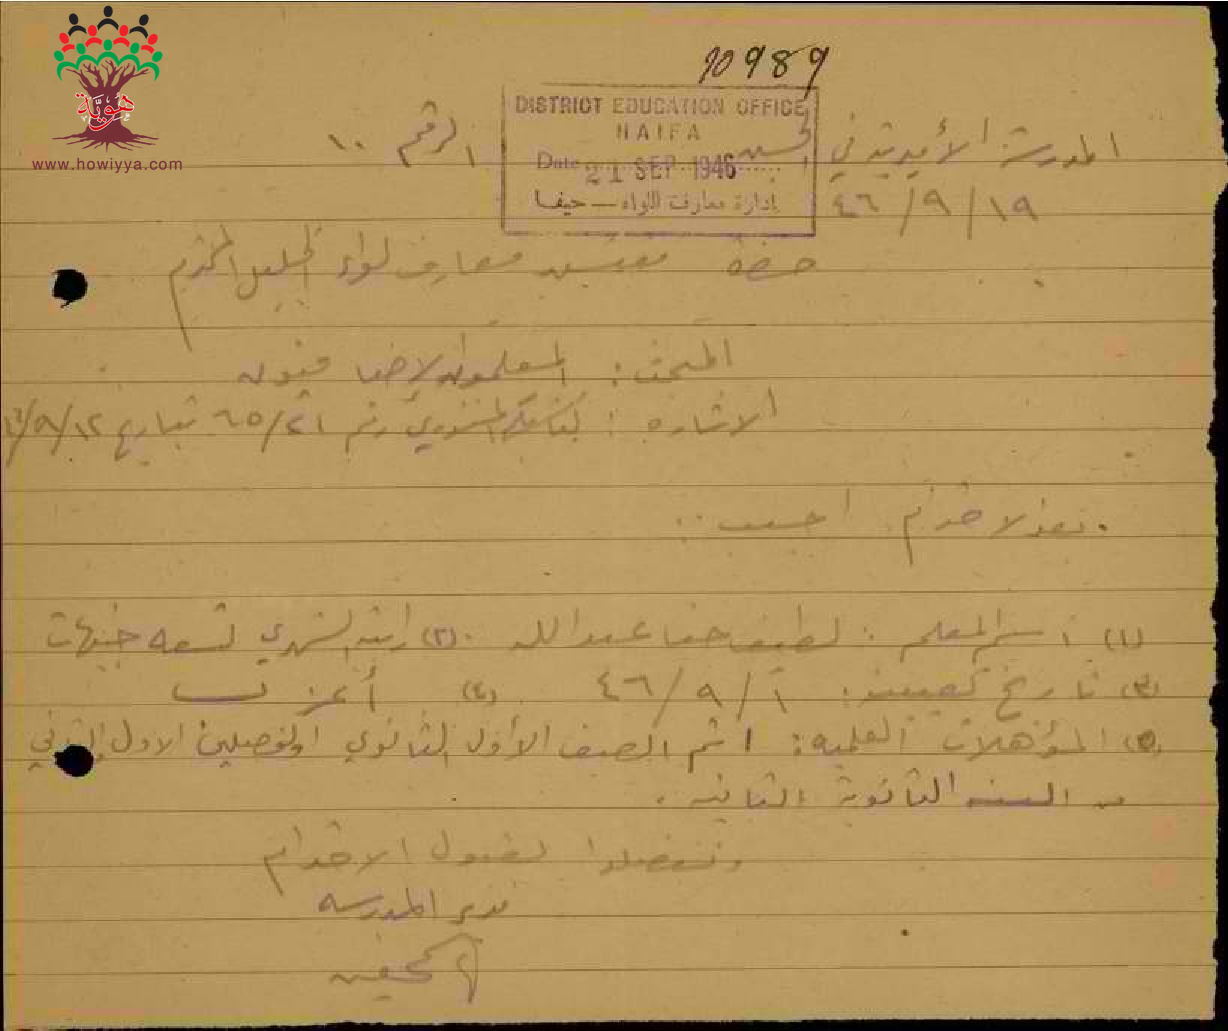 10989
هوية
www.howiyya.com
DISTRICT EDUCATION OFFICE
HAIFA
Date 21 SEP 1946
إدارة معارف اللواء — حيفا
المدرسة الأميرية في الرقم ١٠
٤٦/٩/١٩
حضرة مفتش معارف لواء الجليل المحترم
المبحث: المعلمون الاضافيون
الاشارة: كتابكم رقم ٦٥/٢١ بتاريخ ١٢/٩/
بعد الاحترام اجيب..
(١) اسم المعلم: لطيف حنا عبد الله. (٢) راتبه الشهري تسعة جنيهات
(٣) تاريخ تعيينه: ٤٦/٩/١ (٤) أعزب
(٥) المؤهلات العلمية: اتم الصف الأول الثانوي والفصلين الاول والثاني
من السنة الثانوية الثانية.
وتفضلوا بقبول الاحترام
مدير المدرسة